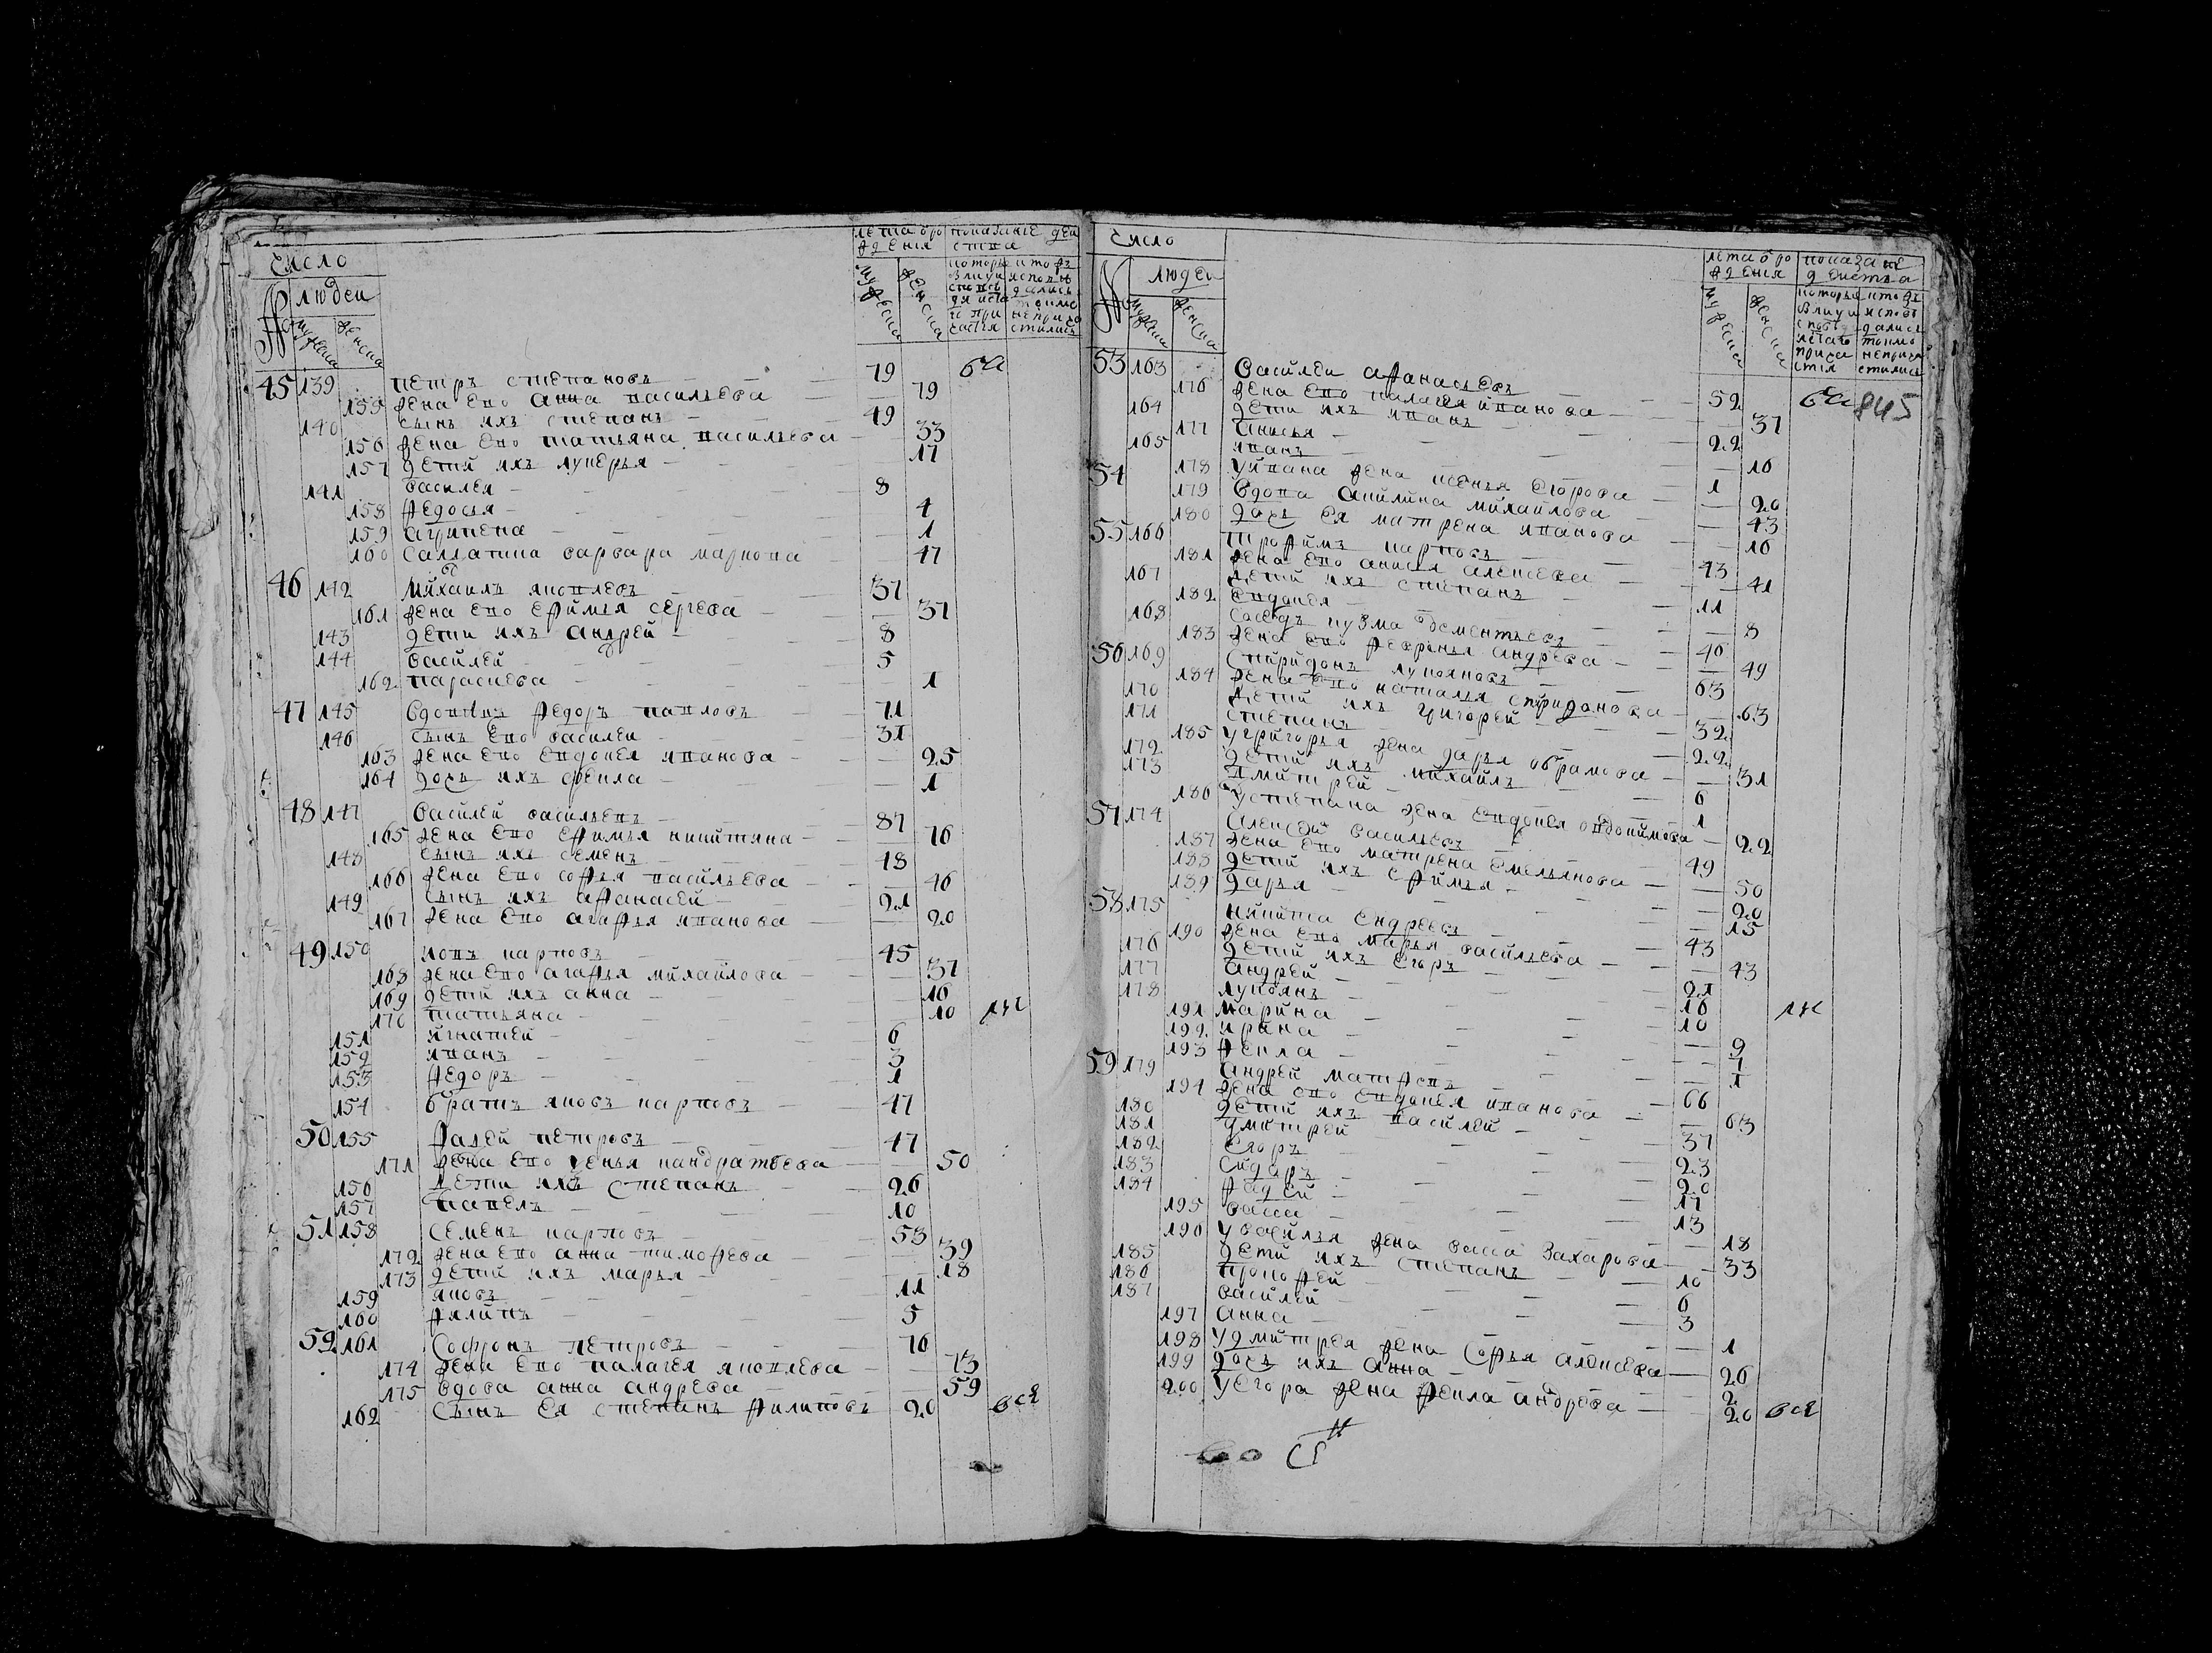 Число
лета от рождения
показание действа
№
людей
мужеска
женска
мужеска
женска
45 139 петръ степановъ — 79 бы
155 жена ево анна васильева — 79
140 сынъ ихъ степанъ — 49
156 жена ево татьяна васильева — 33
157 дети ихъ лукерья — 17
141 василей — 8
158 федосья — 4
159 агрипена — 1
160 салдатка варвара маркова — 47
46 142 михаилъ яковлевъ — 37
161 жена ево ефимья сергеева — 37
143 дети ихъ андрей — 8
144 василей — 5
162 параскева — 1
47 145 вдовецъ федоръ павловъ — 71
146 сынъ ево василей — 31
163 жена ево евдокея иванова — 25
164 дочь ихъ фекла — 1
48 147 василей васильевъ — 87
165 жена ево ефимья никитина — 76
148 сынъ ихъ семенъ — 48
166 жена ево софья васильева — 46
149 сынъ ихъ афанасей — 21
167 жена ево агафья иванова — 20
49 150 иовъ карповъ — 45
168 жена ево агафья михайлова — 37
169 дети ихъ анна — 16
170 татьяна — 10
151 игнатей — 6
152 иванъ — 3
153 федоръ — 1
154 братъ яковъ карповъ — 47
50 155 фадей петровъ — 47
171 жена ево кандратьева — 50
156 дети ихъ степанъ — 26
157 павелъ — 10
51 158 семенъ карповъ — 53
172 жена ево анна тимофеева — 39
173 дети ихъ марья — 18
159 яковъ — 11
160 филипъ — 5
52 161 софронъ петровъ — 76
174 жена ево палагея яковлева — 73
175 вдова анна андреева — 59
162 сынъ ея степанъ филиповъ 20
Число
лета от рождения
показание действа
№
людей
мужеска
женска
мужеска
женска
845
53 163 василей афанасьевъ — 52 бы
176 жена ево палагея иванова — 37
164 дети ихъ иванъ — 22
177 анисья — 16
165 иванъ — 1
54 178 у ивана жена егорова — 20
179 вдова акилина михайлова — 43
180 дочь ея матрена иванова — 16
55 166 трофимъ карповъ — 43
181 жена ево анисья алексеева — 41
167 дети ихъ степанъ — 11
182 евдокея — 8
168 соседъ кузма дементьевъ — 46
183 жена ево андреева — 49
56 169 спиридонъ лукояновъ — 63
184 жена ево наталья спиридонова — 63
170 дети ихъ григорей — 32
171 степанъ — 22
185 у григорья жена дарья абрамова — 31
172 дети ихъ михайлъ — 6
173 дмитрей — 1
186 у степана жена евдокея — 22
57 174 алексей васильевъ — 49
187 жена ево матрена емельянова — 50
188 дети ихъ ефимья — 20
189 дарья — 15
58 175 никита андреевъ — 43
190 жена ево марья васильева — 43
176 дети ихъ егоръ — 21
177 андрей — 16
178 лукоянъ — 10
191 марина — 9
192 ирина — 7
193 фекла — 1
59 179 андрей матфеевъ — 66
194 жена ево евдокея иванова — 63
180 дети ихъ василей — 37
181 дмитрей — 23
182 егоръ — 20
183 сидаръ — 17
184 фадей — 13
195 васса — 18
196 у василья жена васса захарова — 33
185 дети ихъ степанъ — 10
186 прокофей — 6
187 василей — 3
197 анна — 1
198 у дмитрея жена софья алексеева — 26
199 дочь ихъ анна — 2
200 у егора жена фекла андреева — 20